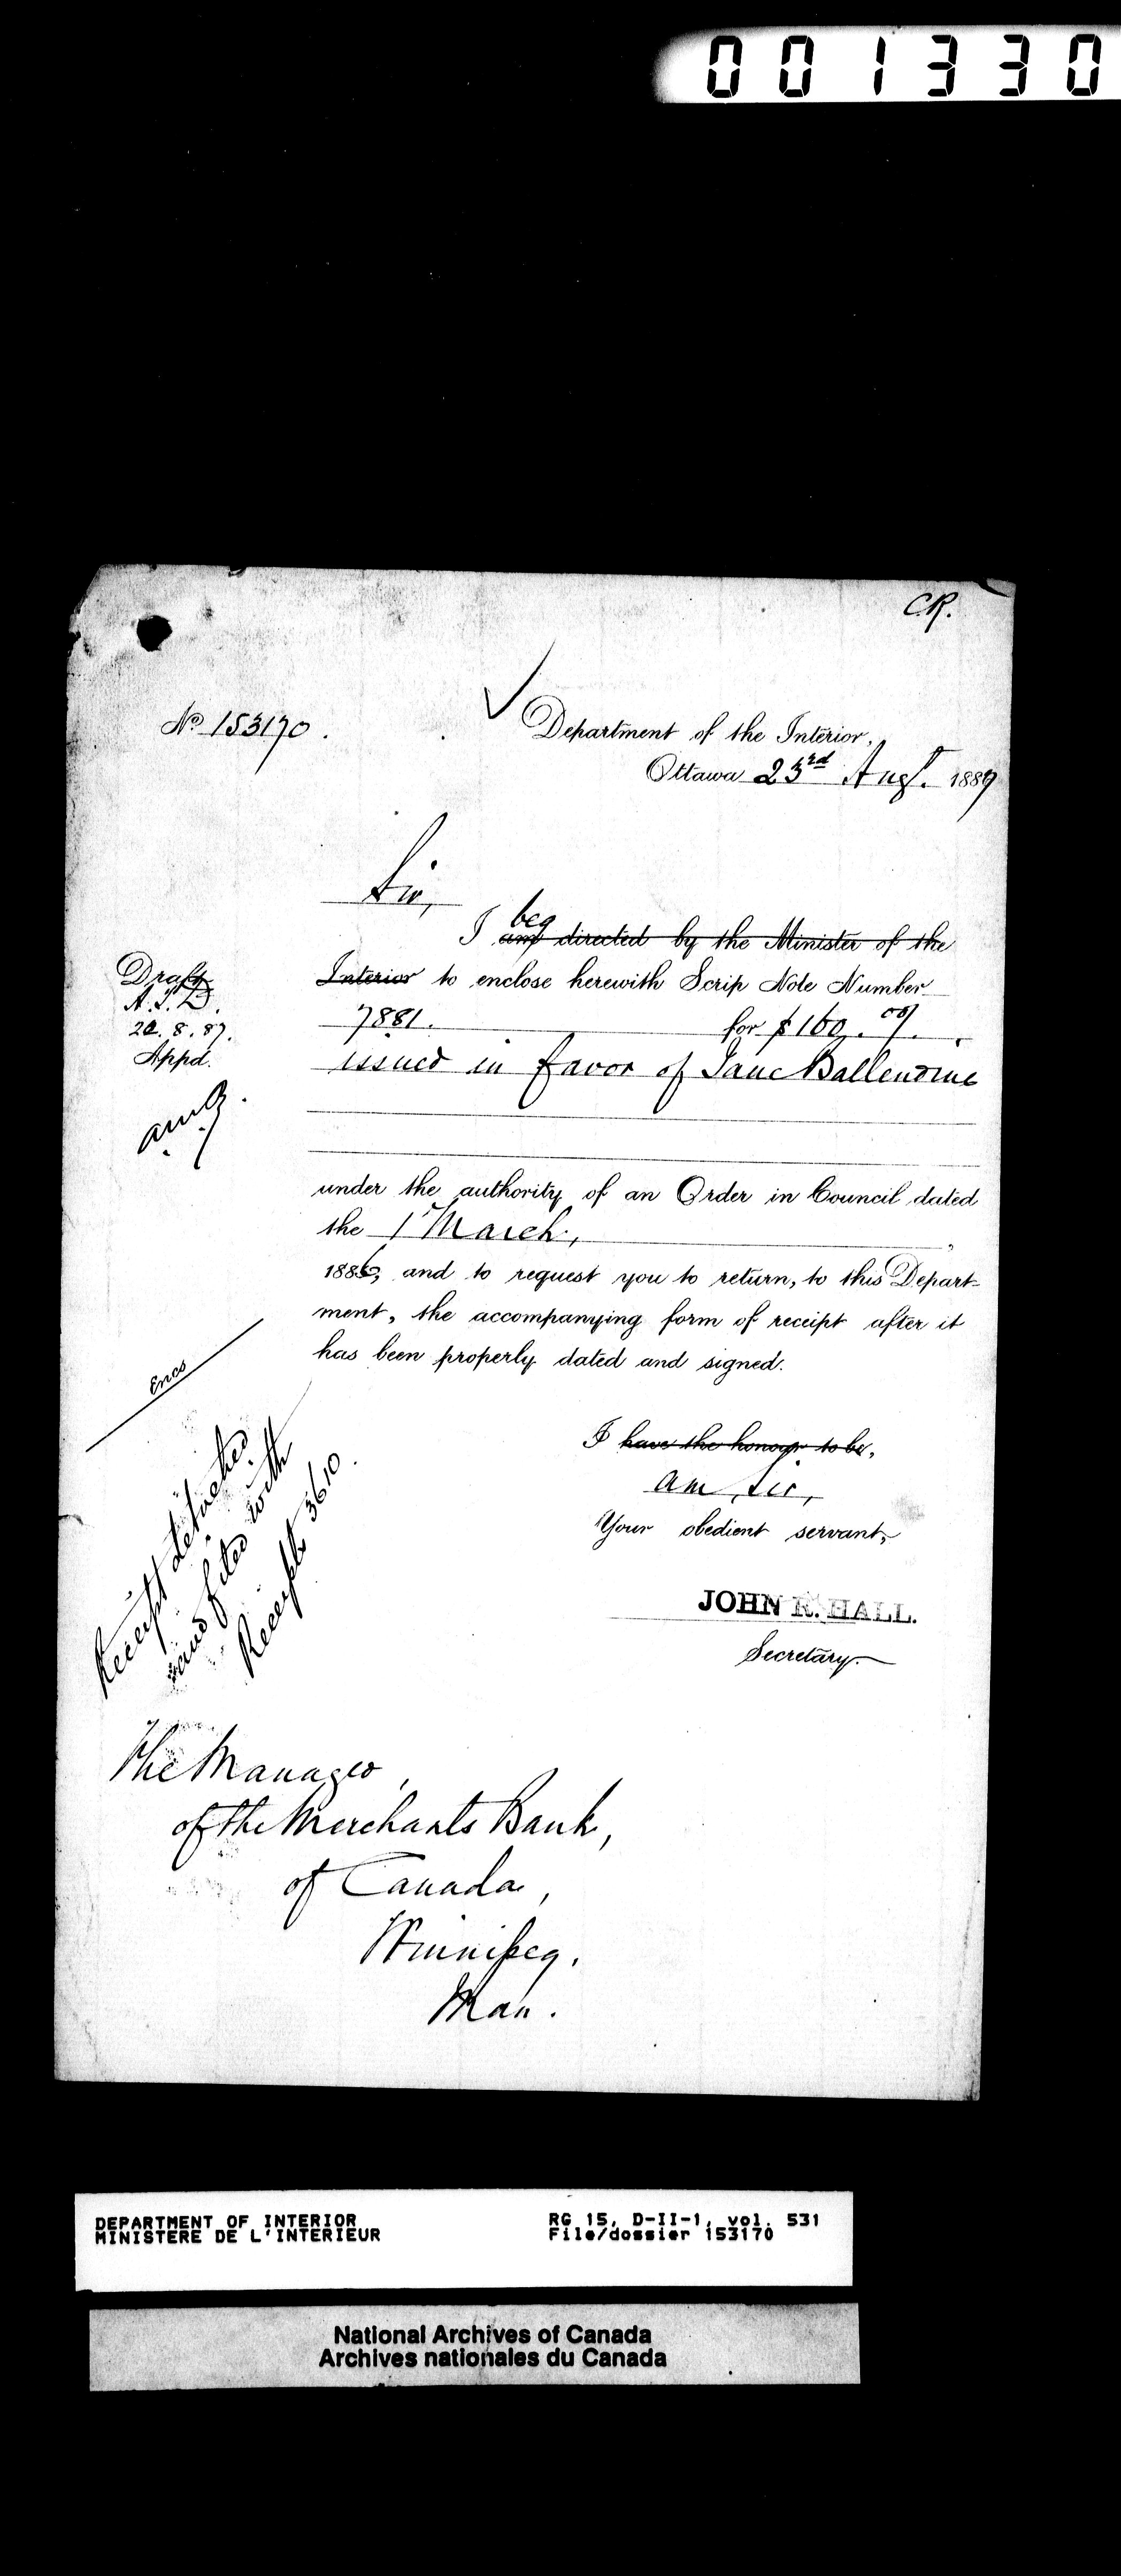 001330
C.R.
No 153170.
Department of the Interior,
Ottawa 23rd Augt. 1889
Sir,
beg
I am directed by the Minister of the
Interior to enclose herewith Scrip Note Number
7881. for $160.00/.
issued in favor of Jane Ballendine
Draft
22.8.87.
Appd.
under the authority of an Order in Council dated
the 1st March,
1886, and to request you to return, to this Depart-
ment, the accompanying form of receipt after it
has been properly dated and signed.
Encs
I have the honour to be,
am, Sir,
Your obedient servant,
JOHN R. HALL.
Secretary.
Receipt detached
and filed with
Receipt 3610.
The Manager,
of the Merchants Bank,
of Canada,
Winnipeg,
Man.
DEPARTMENT OF INTERIOR
MINISTERE DE L'INTERIEUR
RG 15, D-II-1, vol. 531
File/dossier 153170
National Archives of Canada
Archives nationales du Canada